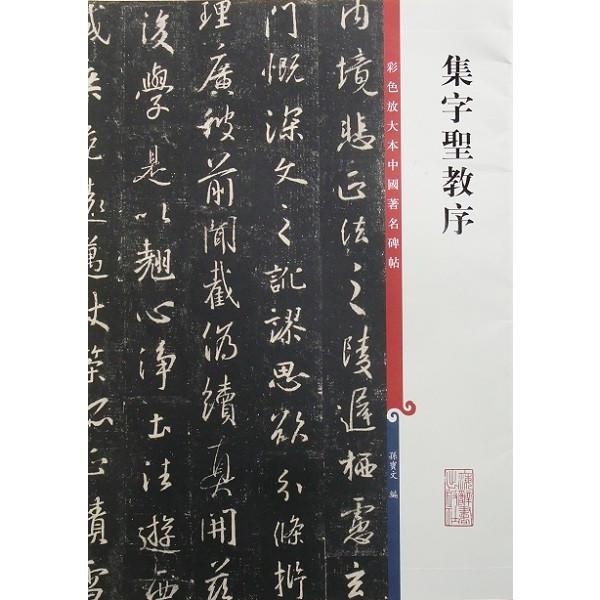 集字聖教序
彩色放大本中國著名碑帖
孫寶文 編
內境悲正法之陵遲栖慮玄
門慨深文之訛謬思欲分條析
理廣彼前聞截偽續真開茲
後學是以翹心淨土法遊西
域乘危遠邁杖策孤征積雪